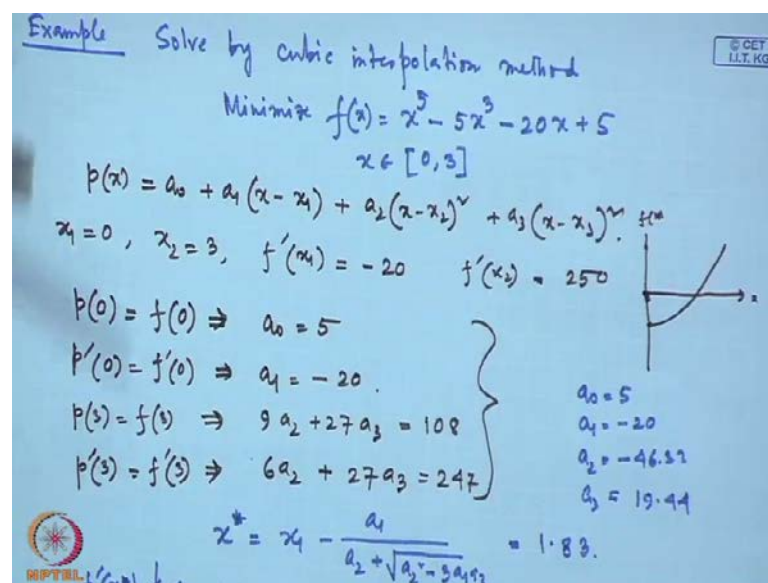 Example Solve by cubic interpolation method
© CET
I.I.T. KG
Minimize f(x) = x⁵ - 5x³ - 20x + 5
x ∈ [0, 3]
p(x) = a₀ + a₁(x - x₁) + a₂(x-x₂)² + a₃(x-x₃)².
x₁ = 0, x₂ = 3, f'(x₁) = -20 f'(x₂) = 250
p(0) = f(0) ⇒ a₀ = 5
p'(0) = f'(0) ⇒ a₁ = -20.
p(3) = f(3) ⇒ 9a₂ + 27a₃ = 108
p'(3) = f'(3) ⇒ 6a₂ + 27a₃ = 247
x
a₀ = 5
a₁ = -20
a₂ = -46.33
a₃ = 19.44
x* = x₁ - a₁ / (a₂ + √(a₂² - 3a₁a₃)) = 1.83.
NPTEL